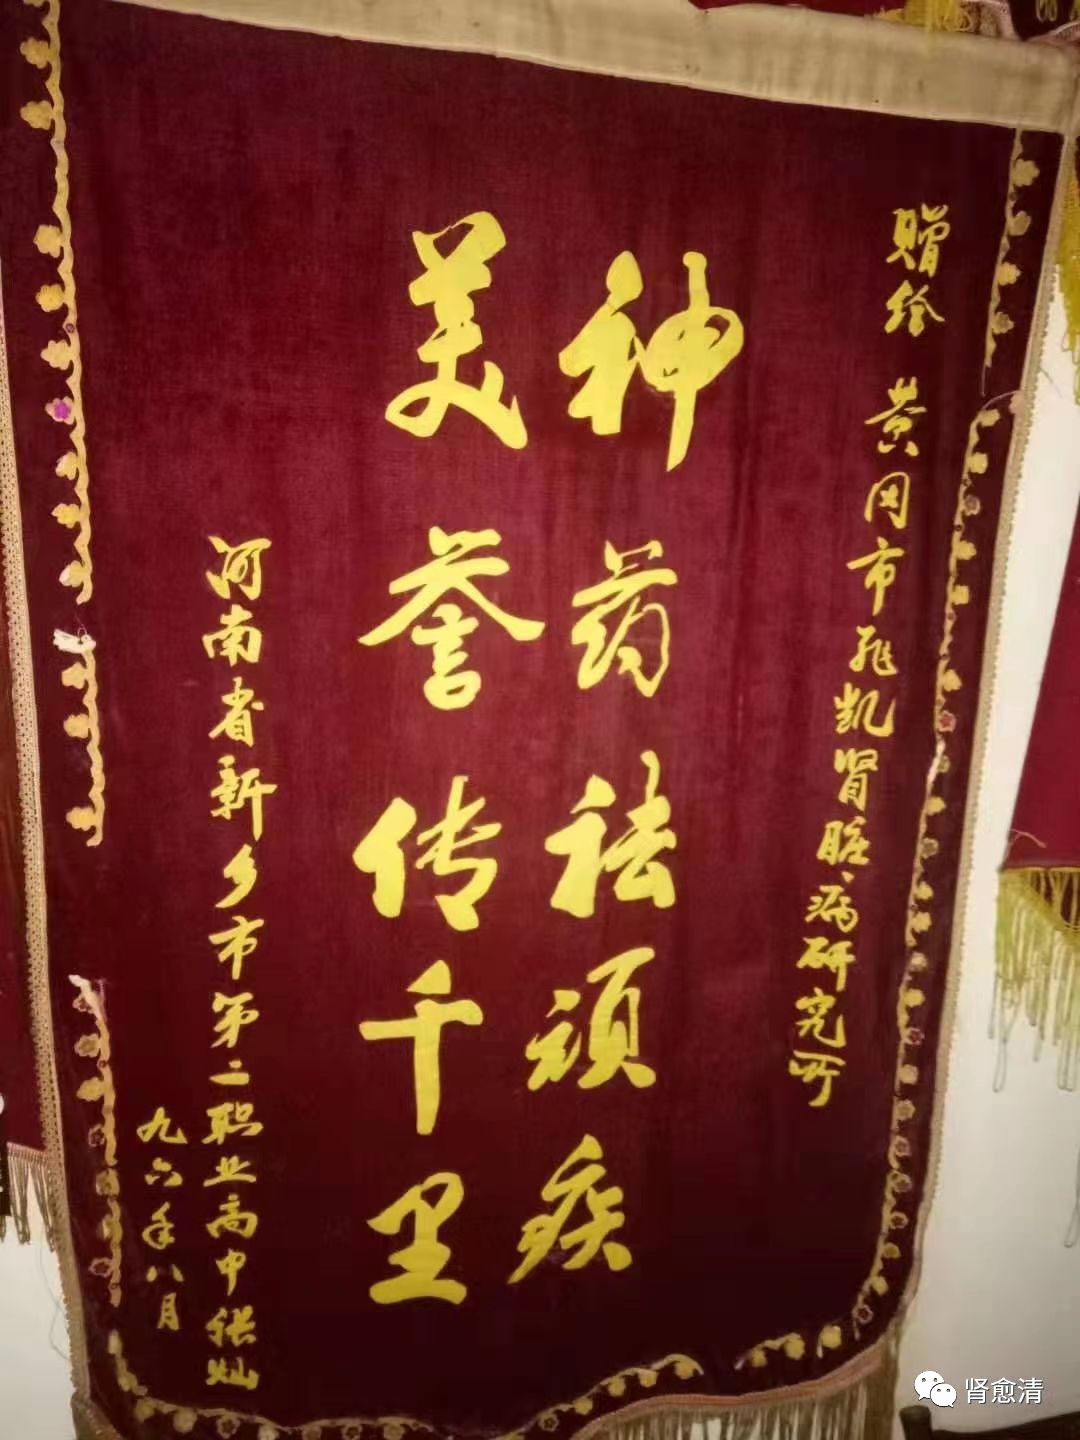 赠给 黄冈市飞凯肾脏病研究所
神药祛顽疾
美誉传千里
河南省新乡市第二职业高中张灿
九六年八月
肾愈清